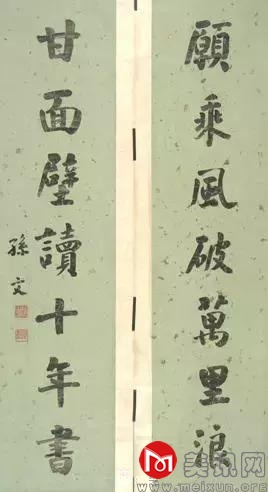 願乘風破萬里浪
甘面壁讀十年書
孫文
美讯网
www.meixun.org